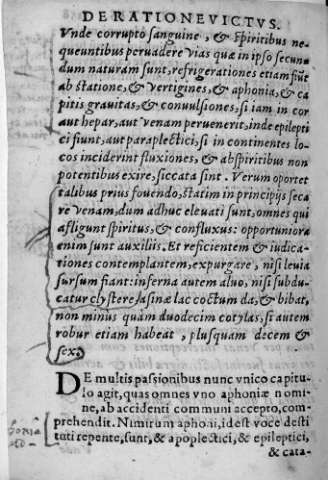 DE RATIONE VICTVS.
Vnde corrupto sanguine, & spiritibus ne-
queuntibus peruadere vias quæ in ipso secun-
dum naturam sunt, refrigerationes etiam fiũt
ab statione, & vertigines, & aphonia, & ca
pitis grauitas, & conuulsiones, si iam in cor
aut hepar, aut venam peruenerit, inde epilepti
ci fiunt, aut paraplectici, si in continentes lo-
cos inciderint fluxiones, & abspiritibus non
potentibus exire, siccata sint. Verum oportet
talibus prius fouendo, statim in principijs seca
re venam, dum adhuc eleuati sunt, omnes qui
afligunt spiritus, & confluxus: opportuniora
enim sunt auxiliis. Et reficientem & iudica-
tiones contemplantem, expurgare, nisi leuia
sursum fiant: inferna autem aluo, nisi subdu-
catur clystere, asinæ lac coctum da, & bibat,
non minus quàm duodecim cotylas, si autem
robur etiam habeat, plusquam decem &
sex.
DE multis passionibus nunc vnico capitu
lo agit, quas omnes vno aphoniæ nomi-
ne, ab accidenti communi accepto, com-
prehendit. Nimirum aphoni, idest voce desti
tuti repente, sunt, & apoplectici, & epileptici,
& cata-